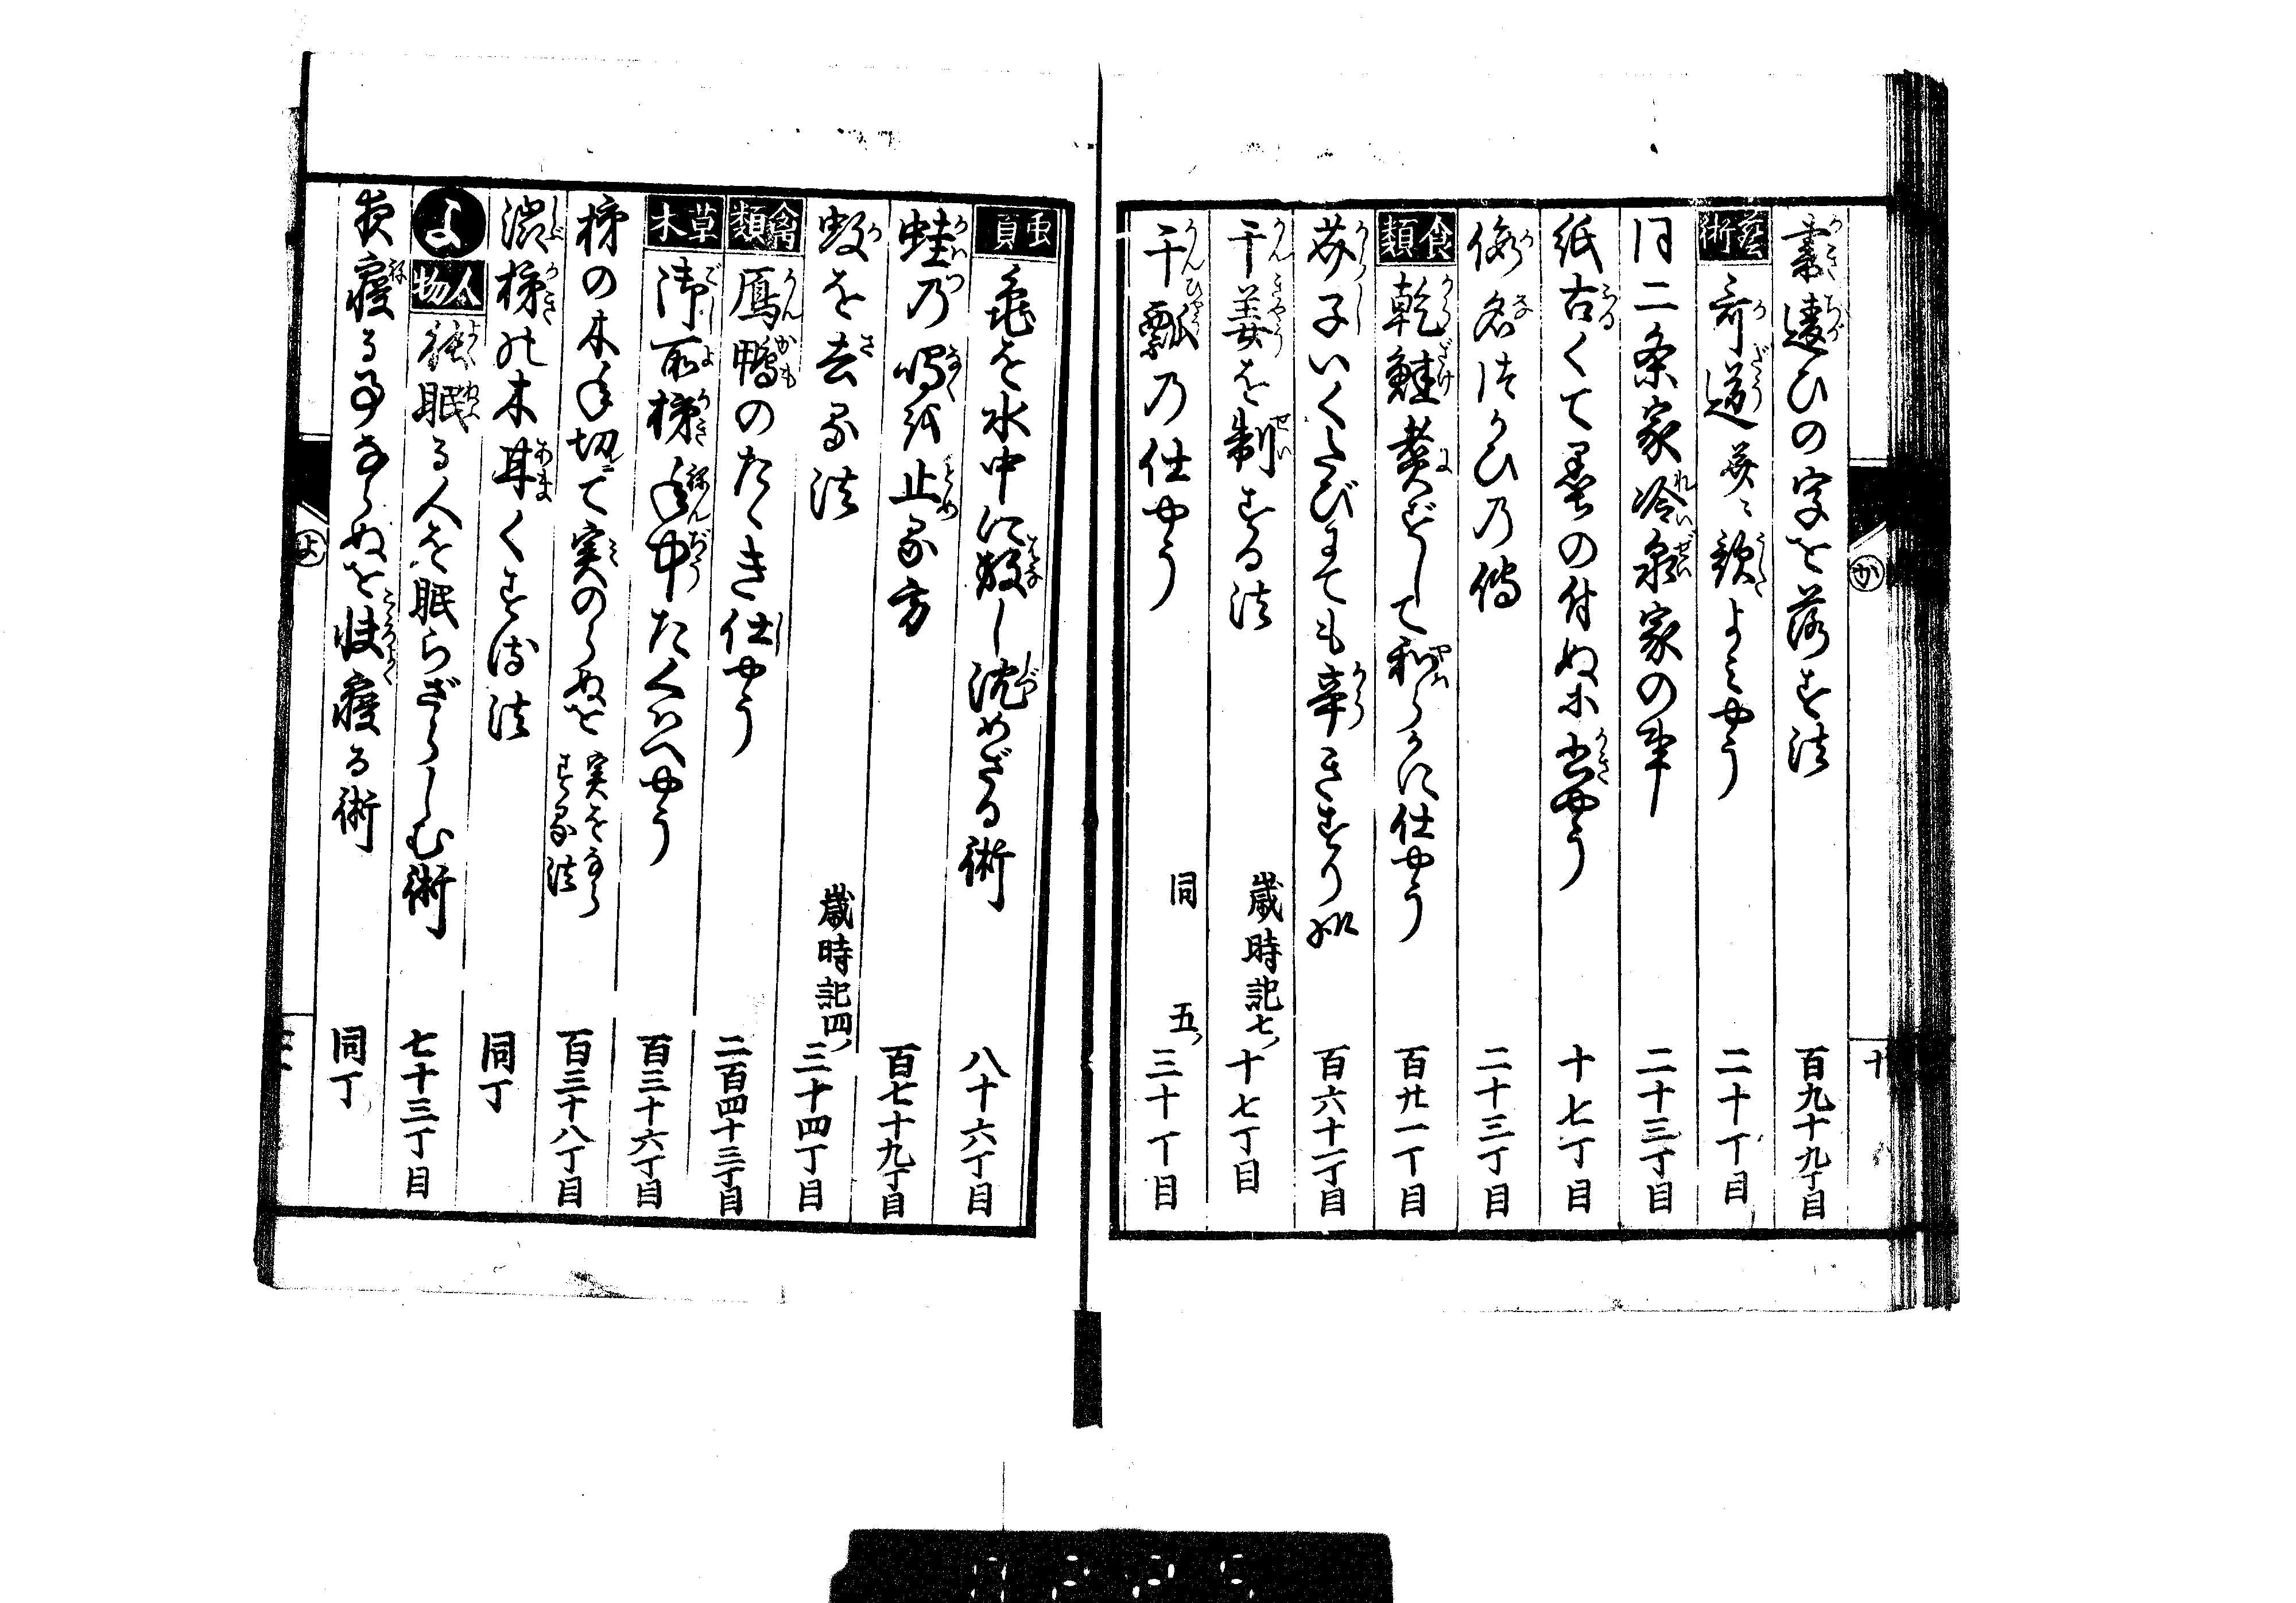 書違ひの字を落す法 百九十九丁目
藝術 哥道并ニ歌よミやう 二十丁目
同二条家冷泉家の事 二十三丁目
紙古くて墨の付ぬに書やう 十七丁目
仮名つかひの傳 二十三丁目
食類 乾鮭煮びして和らかに仕やう 百廿一丁目
芥子いくたびにても辛きすり様 百六十一丁目
干姜を制する法 歳時記七ノ十七丁目
干瓢乃仕やう 同 五ノ三十丁目
虫類 亀を水中に放し沈めざる術 八十六丁目
蛙乃鳴を止る方 百七十九丁目
蚊を去る法 歳時記四ノ三十四丁目
禽類 鳫鴨のたゝき仕やう 二百四十三丁目
草木 御所柿年中たくハへやう 百三十六丁目
柿の木年切て実のらぬを実をならする法 百三十八丁目
渋柿の木甘くする法 同丁
よ 人物 能眠る人を眠らざらしむ術 七十三丁目
夜寝る事ならぬを快寝る術 同丁
か
十
よ